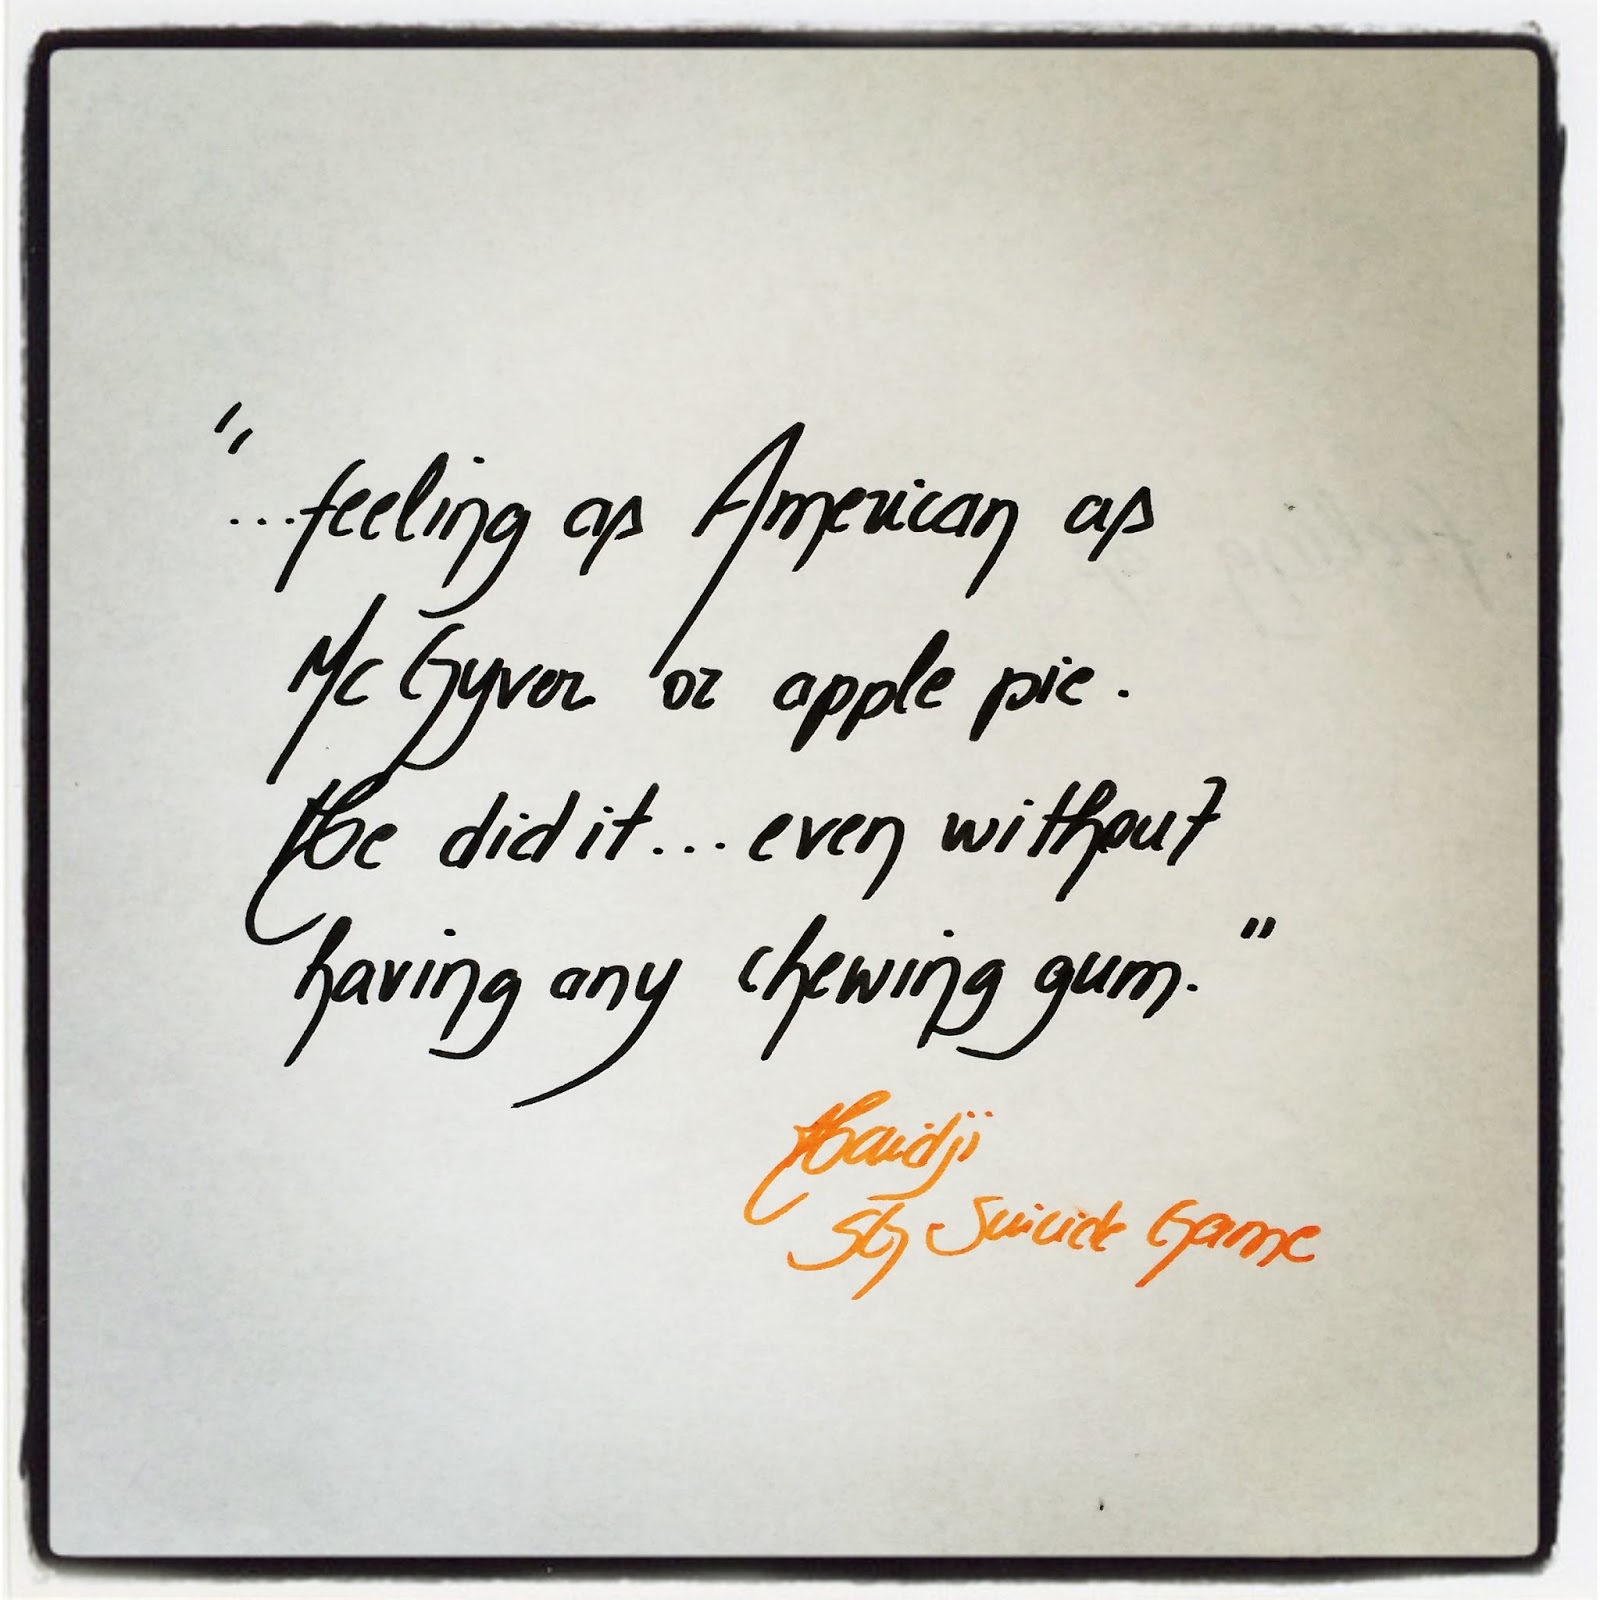 "...feeling as American as
McGyver or apple pie.
He did it...even without
having any chewing gum."
Haidji
SG Suicide Game